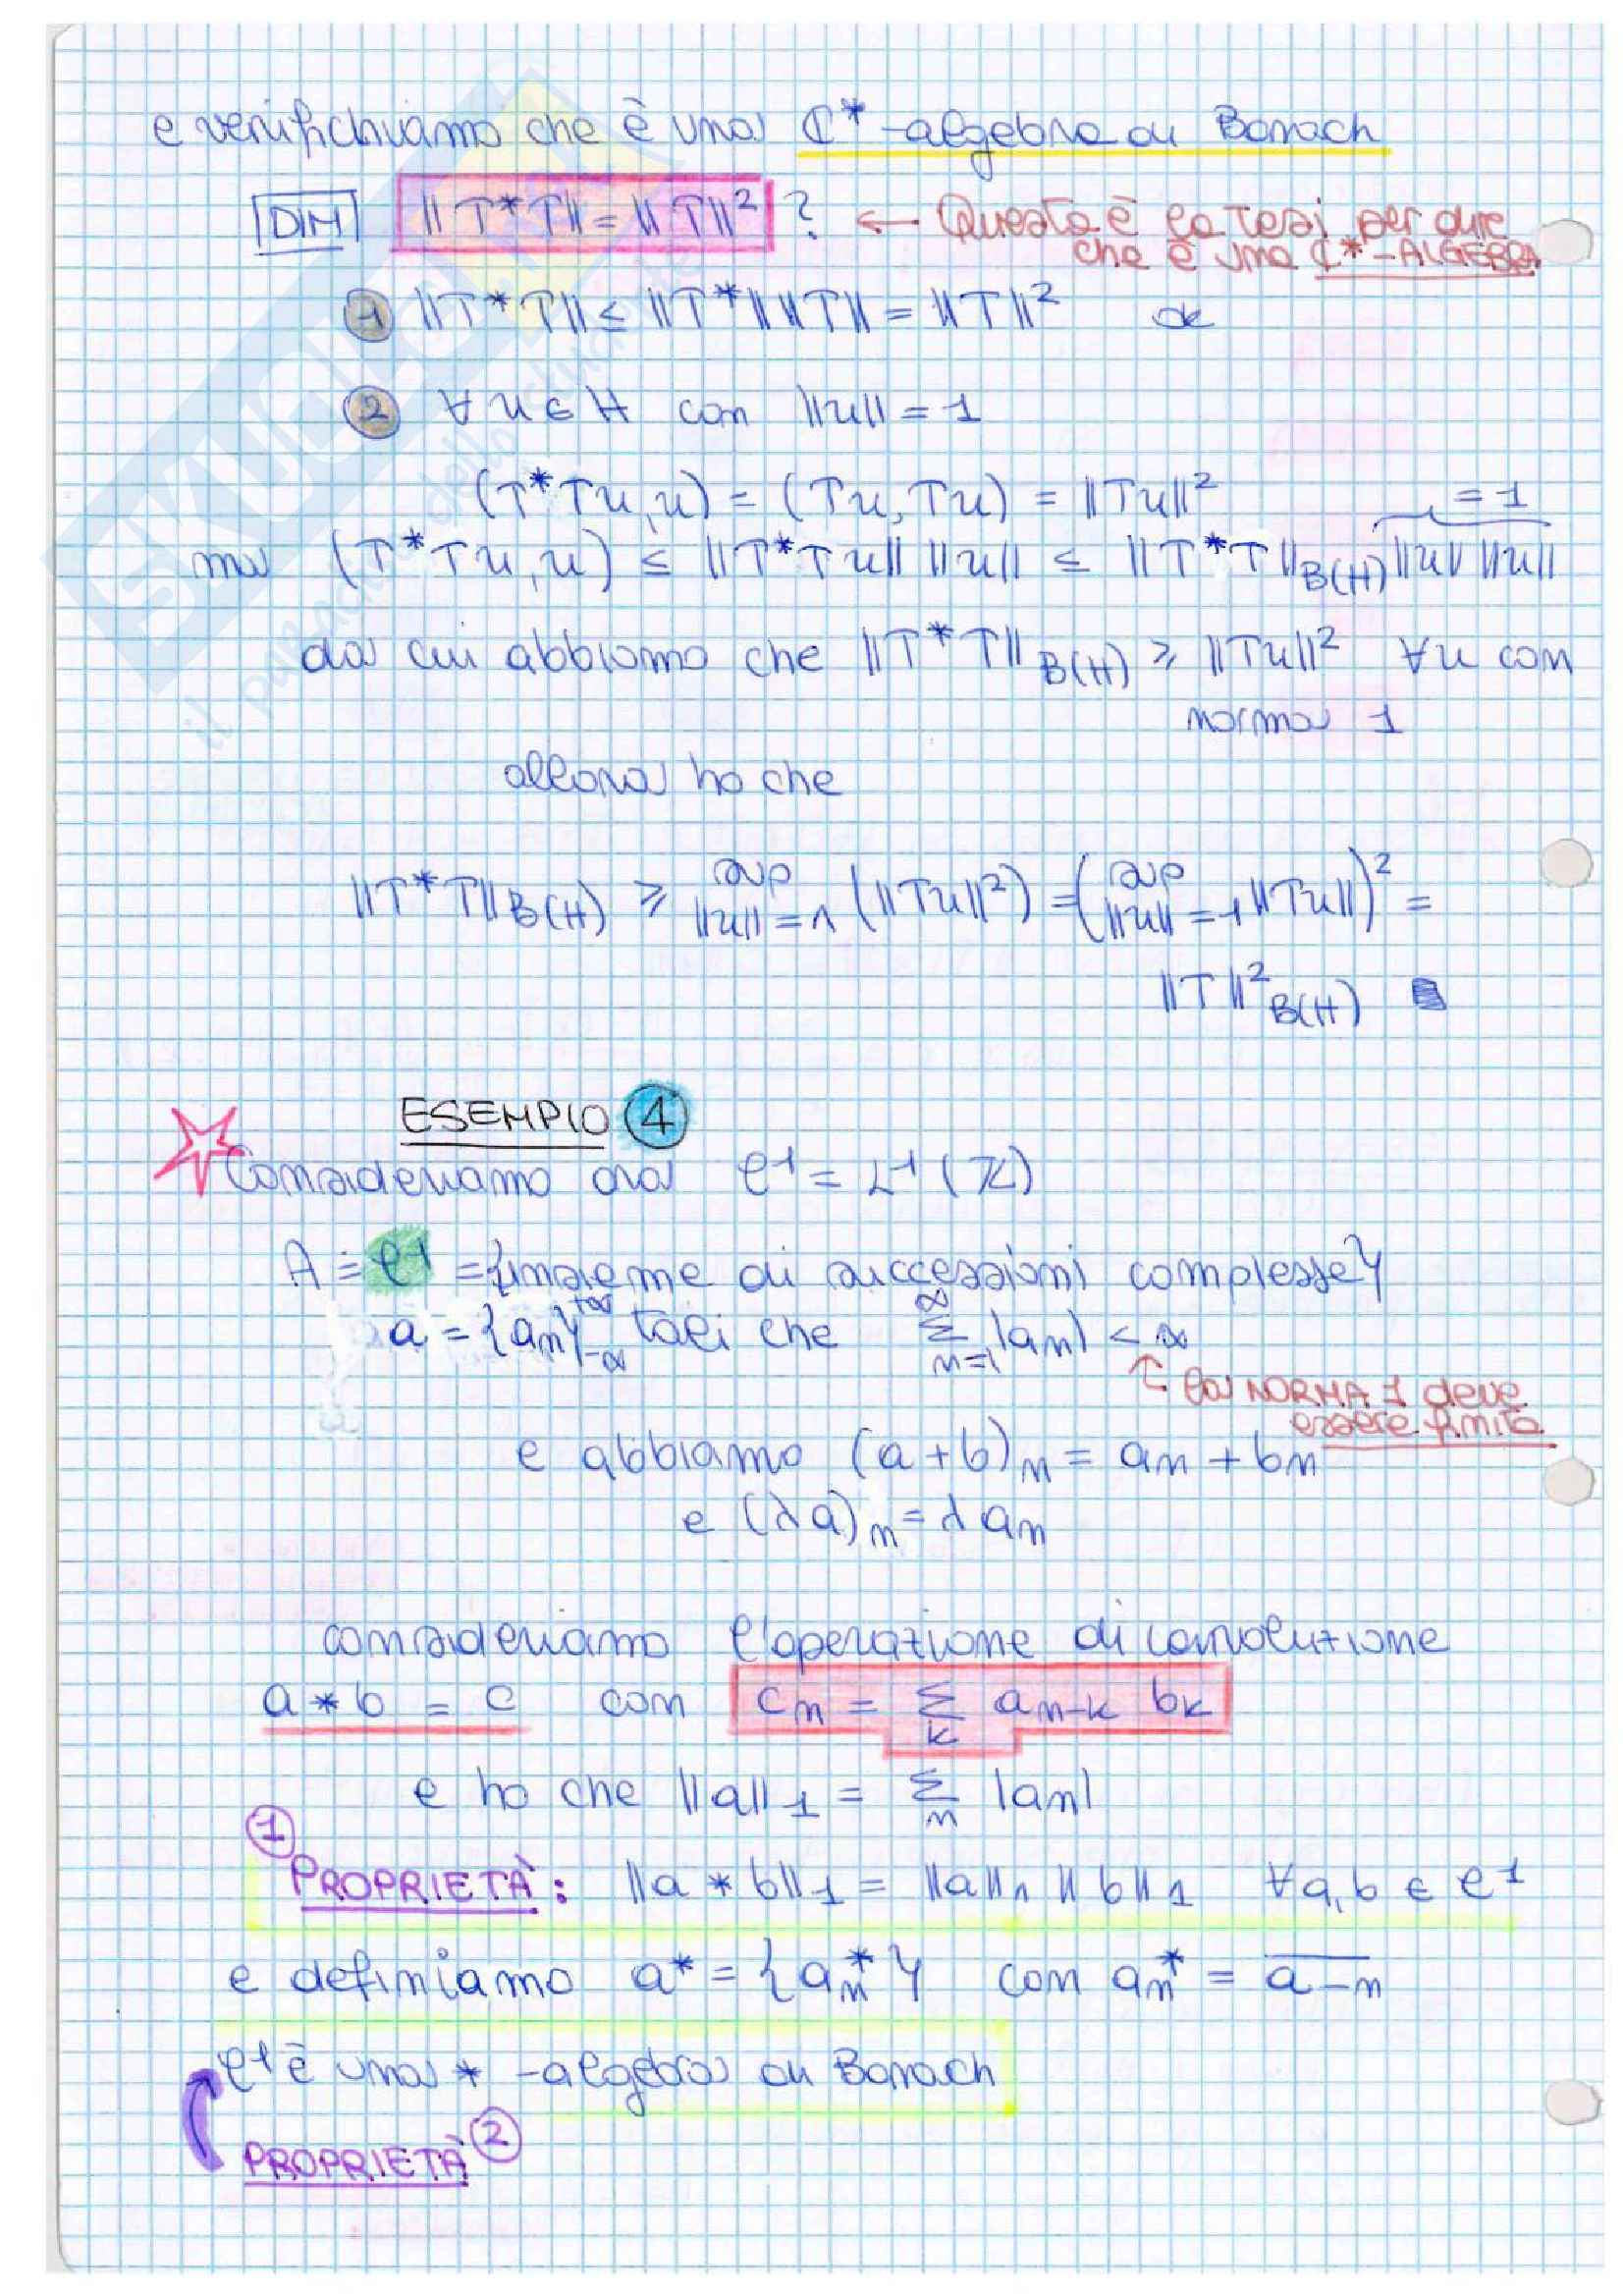 e verifichiamo che è una ℂ*-algebra di Banach
DIM ‖T*T‖ = ‖T‖² ? ← Questa è la tesi per dire
che è una ℂ*-ALGEBRA
① ‖T*T‖ ≤ ‖T*‖‖T‖ = ‖T‖² ok
② ∀ u ∈ H con ‖u‖ = 1
(T*Tu, u) = (Tu, Tu) = ‖Tu‖² = 1
ma (T*Tu, u) ≤ ‖T*Tu‖ ‖u‖ ≤ ‖T*T‖B(H) ‖u‖ ‖u‖
da cui abbiamo che ‖T*T‖B(H) ≥ ‖Tu‖² ∀u con
norma 1
allora ho che
‖T*T‖B(H) ≥ sup ‖u‖=1 (‖Tu‖²) = (sup ‖u‖=1 ‖Tu‖)² =
‖T‖²B(H)
ESEMPIO ④
Consideriamo ora ℓ¹ = L¹(ℤ)
A = ℓ¹ = {insieme di successioni complesse}
a = {an}+∞-∞ tali che ∞Σn=1 |an| < ∞
↑ la NORMA 1 deve
essere finita
e abbiamo (a+b)n = an + bn
e (λa)n = λan
consideriamo l'operazione di convoluzione
a * b = c con cn = Σk an-k bk
e ho che ‖a‖1 = Σn |an|
①
PROPRIETÀ: ‖a * b‖1 = ‖a‖1 ‖b‖1 ∀a,b ∈ ℓ¹
e definiamo a* = {an*} con an* = a̅-̅n̅
ℓ¹ è una *-algebra di Banach
PROPRIETÀ ②
SKUOLA
il paradiso dello studente